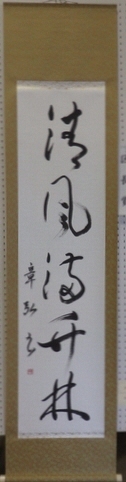 清風満竹林
章弘書